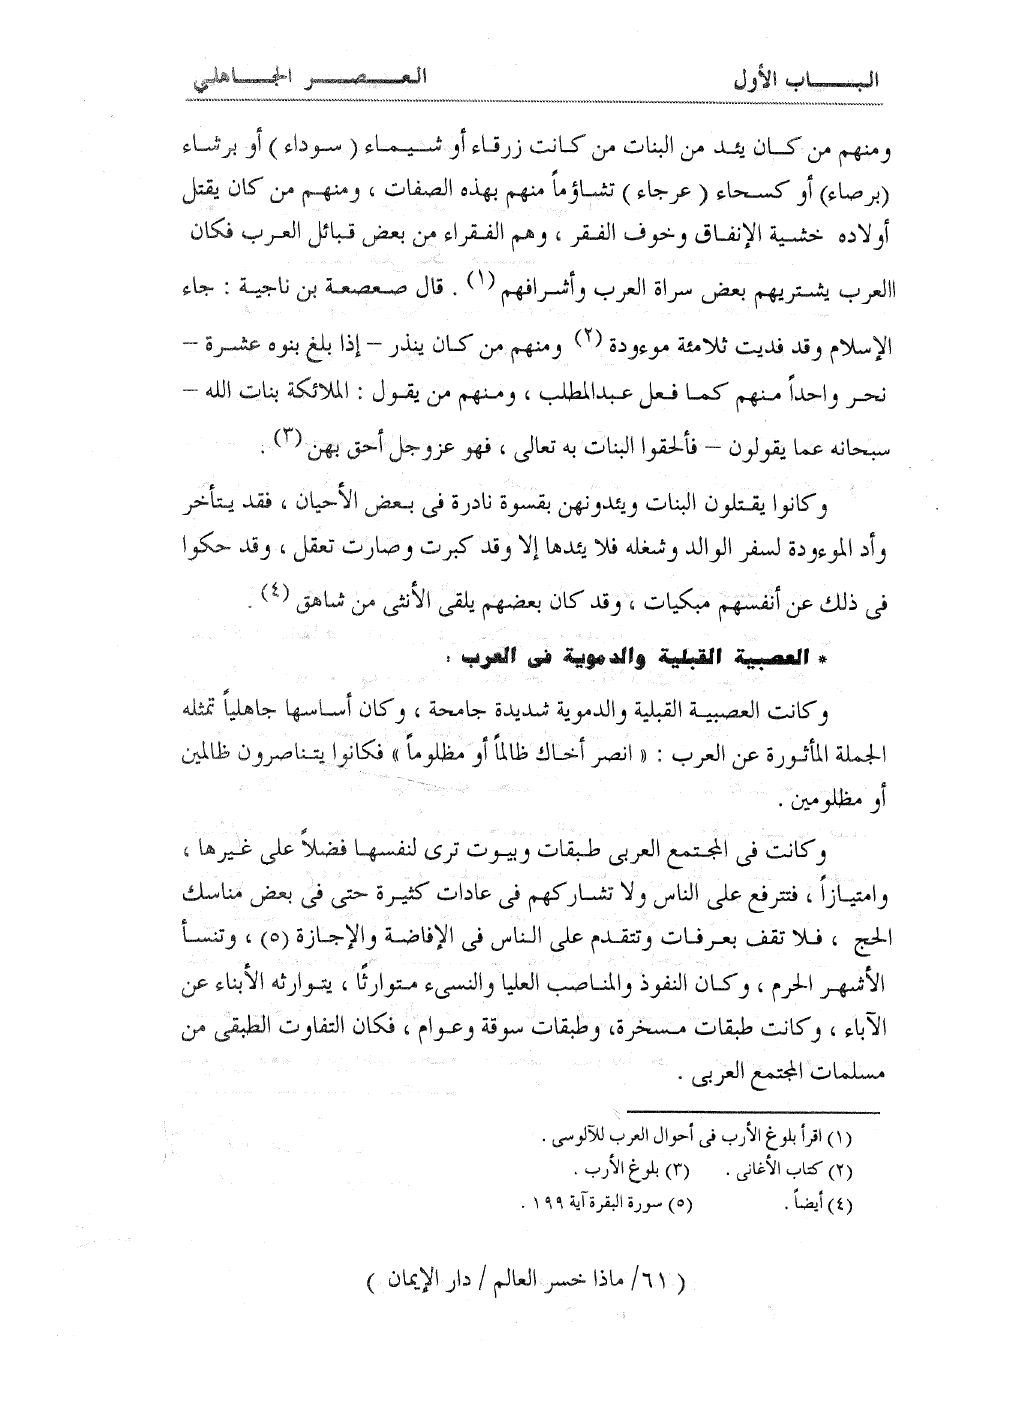 البـــاب الأول
العـــصـــر الجـــاهلي
ومنهم من كـان يئد من البنات من كانت زرقاء أو شيماء ( سوداء ) أو برشاء
(برصاء) أو كسحاء ( عرجاء ) تشاؤماً منهم بهذه الصفات ، ومنهم من كان يقتل
أولاده خشية الإنفاق وخوف الفقر ، وهم الفقراء من بعض قبائل العرب فكان
االعرب يشتريهم بعض سراة العرب وأشرافهم (١) . قال صعصعة بن ناجية : جاء
الإسلام وقد فديت ثلامئة موءودة (٢) ومنهم من كان ينذر – إذا بلغ بنوه عشرة –
نحر واحداً منهم كما فعل عبدالمطلب ، ومنهم من يقول : الملائكة بنات الله –
سبحانه عما يقولون – فألحقوا البنات به تعالى ، فهو عزوجل أحق بهن (٣) .
وكانوا يقتلون البنات ويئدونهن بقسوة نادرة فى بعض الأحيان ، فقد يتأخر
وأد الموءودة لسفر الوالد وشغله فلا يئدها إلا وقد كبرت وصارت تعقل ، وقد حكوا
فى ذلك عن أنفسهم مبكيات ، وقد كان بعضهم يلقى الأنثى من شاهق (٤) .
* العصبية القبلية والدموية فى العرب :
وكانت العصبية القبلية والدموية شديدة جامحة ، وكان أساسها جاهلياً تمثله
الجملة المأثورة عن العرب : « انصر أخاك ظالماً أو مظلوماً » فكانوا يتناصرون ظالمين
أو مظلومين .
وكانت فى المجتمع العربى طبقات وبيوت ترى لنفسها فضلاً على غيرها ،
وامتيازاً ، فتترفع على الناس ولا تشاركهم فى عادات كثيرة حتى فى بعض مناسك
الحج ، فلا تقف بعرفات وتتقدم على الناس فى الإفاضة والإجازة (٥) ، وتنسأ
الأشهر الحرم ، وكان النفوذ والمناصب العليا والنسىء متوارثًا ، يتوارثه الأبناء عن
الآباء ، وكانت طبقات مسخرة، وطبقات سوقة وعوام ، فكان التفاوت الطبقى من
مسلمات المجتمع العربى .
(١) اقرأ بلوغ الأرب فى أحوال العرب للآلوسى .
(٢) كتاب الأغانى . (٣) بلوغ الأرب .
(٤) أيضاً . (٥) سورة البقرة آية ١٩٩ .
( ٦١/ ماذا خسر العالم / دار الإيمان )